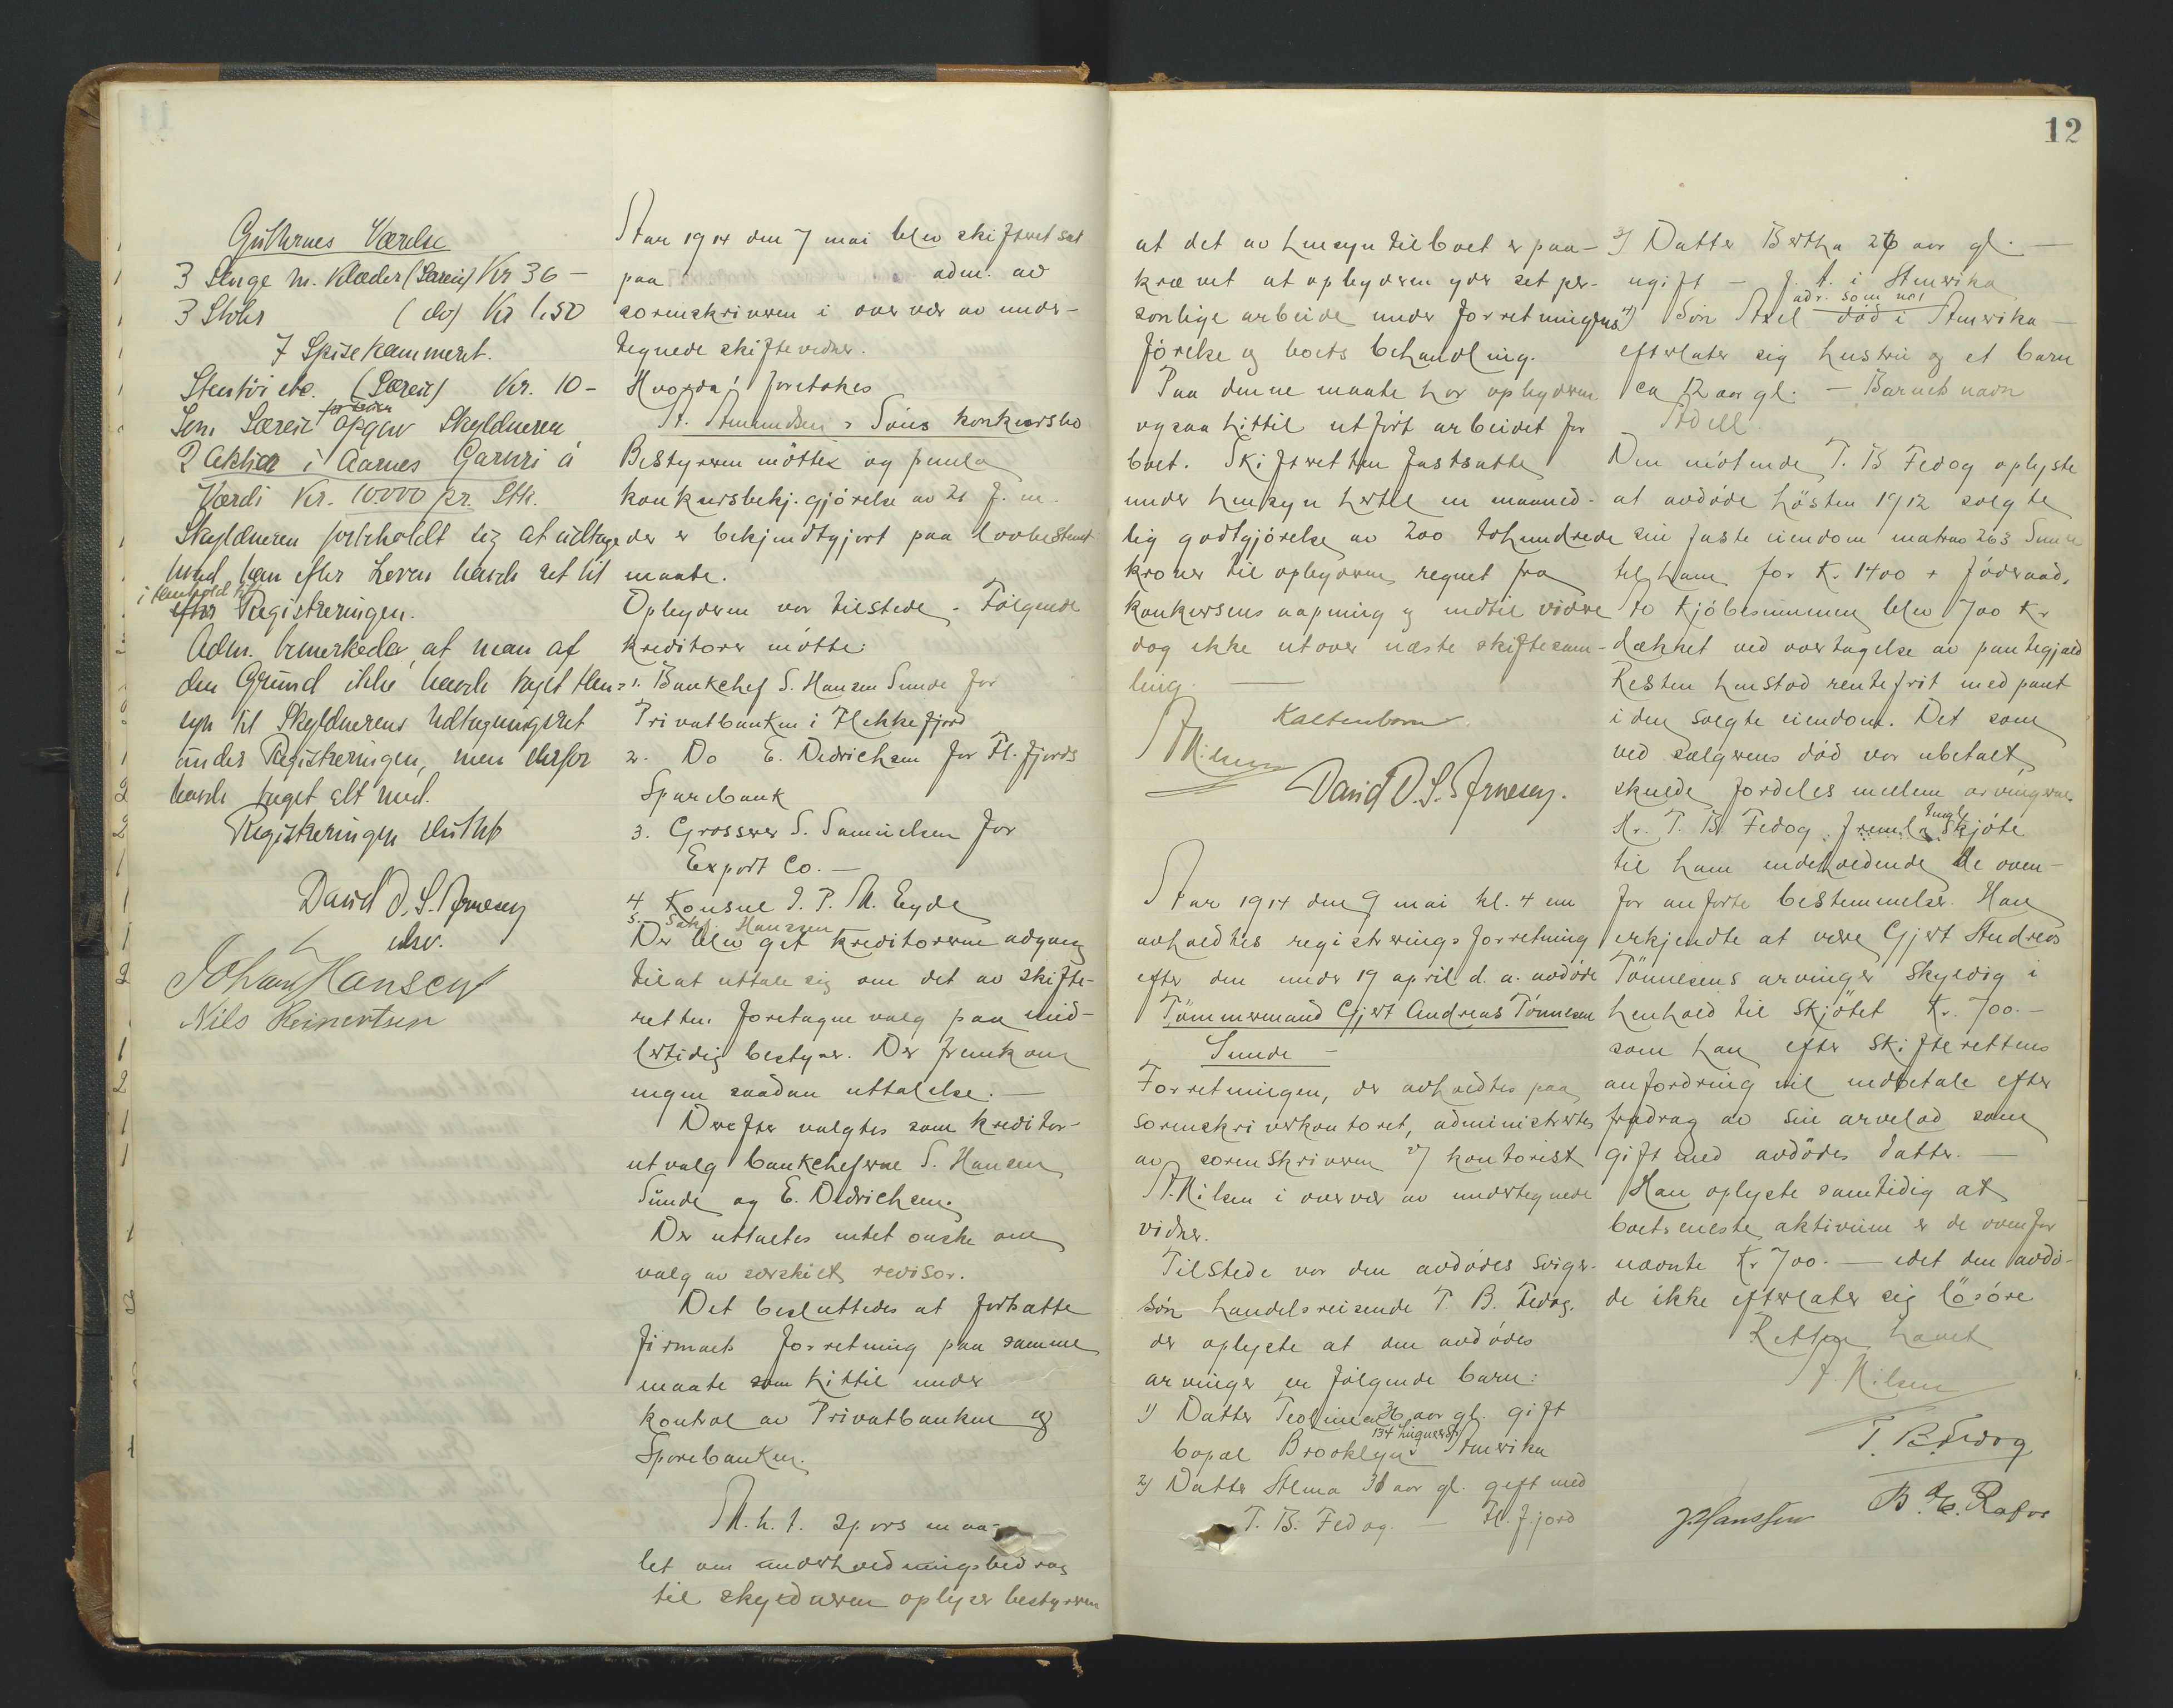 12
Gutternes Værelse
3 Senge m. Klæder (Særeie) Kr 36 –
3 Stoler (do) Kr 1,50
I Spisekammeret.
Stentøi etc. (Særeie) Kr. 10 –
Som Særeie opgav Skyldneren
2 Aktier i Aarnes Garveri á
Værdi Kr. 10000 pr. Stk.
Skyldneren forbeholdt sig at udtage
hvad han efter Loven havde ret til
i Henhold til
efter Registreringen.
Adm. bemerkede, at man af
den Grund ikke havde taget Hen-
syn til Skyldnerens Udtagningsret
under Registreringen, men derfor
havde taget alt med.
Registreringen sluttet
David D. S. Arnesen
Johan Hansen
Nils Reinertsen
Aar 1914 den 7 mai blev skifteret sat
paa adm. av
sorenskriveren i overvær av under-
tegnede skiftevidner.
Hvorda: foretokes
A. Amundsen & Søns konkursbo
Bestyreren møtte og fremla
konkursbekj.gjørelse av 21 f. m.
der er bekjendtgjort paa lovbestemt
maate.
Opbyderen var tilstede. Følgende
kreditorer møtte:
1. Bankchef S. Hansen Sunde for
Privatbanken i Flekkefjord
2. Do E. Dedrichsen for Fl.fjords
Sparebank
3. Grosserer S. Samuelsen for
Export Co. –
4 Konsul J. P. M. Eyde
5. Sakf. Hanssen
Der blev git kreditorerne adgang
til at uttale sig om det av skifte-
retten foretagne valg paa mid-
lertidig bestyrer. Der fremkom
ingen saadan uttalelse. –
Derefter valgtes som kreditor-
utvalg bankcheferne S. Hansen
Sunde og E. Dedrichsen.
Der uttaltes intet ønske om
valg av særskilt revisor.
Det besluttedes at fortsatte
firmaets forretning paa samme
maate som hittil under
kontrol av Privatbanken og
Sparebanken.
M. h. t. spørsmaa-
let om underholdningsbidrag
til skyldneren oplyser bestyreren
at det av hensyn til boet er paa-
krævet at opbyderen yder set per-
sonlige arbeide under forretningens
førelse og boets behandling.
Paa denne maate har opbyderen
ogsaa hittil utført arbeidet for
boet. Skifteretten fastsatte
under hensyn hertil en maaned-
lig godtgjørelse av 200 tohundrede
kroner til opbyderen regnet fra
konkursens aapning og indtil videre
dog ikke utover næste skiftesam-
ling. –
Kaltenborn
A Nilsen
David D. S. Arnesen.
Aar 1914 den 9 mai kl. 4 em
avholdtes registreringsforretning
efter den under 19 april d. a. avdøde
Tømmermand Gjert Andreas Tønnesen
Sunde –
Forretningen, der avholdtes paa
sorenskriverkontoret, administrertes
av sorenskriveren v/ kontorist
A. Nilsen i overvær av undertegnede
vidner.
Tilstede var den avdødes sviger-
søn handelsreisende T. B. Fedog.
der oplyste at den avdødes
arvinger er følgende barn:
1) Datter Teoline 36 aar gl. gift
bopæl Brooklyn Amerika
2) Datter Alma 31 aar gl. gift med
T. B. Fedog. – Fl.fjord
3) Datter Bertha 26 aar gl. –
ugift – f. t. i Amerika
adr. som no1
4) Søn Axel død i Amerika –
efterlater sig hustru og et barn
ca 12 aar gl. – Barnets navn
Adell.
Den møtende T. B. Fedog oplyste
at avdøde høsten 1912 solgte
sin faste eiendom matrno 263 Sunde
til ham for Kr. 1400 + føderaad.
Av kjøbesummen blev 700 Kr
dækket ved overtagelse av pantegjæld
Resten henstod rentefrit med pant
i den solgte eiendom. Det som
ved sælgerens død var ubetalt
skulde fordeles mellem arvingerne.
Hr. T. B. Fedog fremla skjøte
til ham indeholdende de oven-
for anførte bestemmelser. Han
erkjendte at være Gjert Andreas
Tønnesens arvinger skyldig i
henhold til skjøtet Kr. 700. –
som han efter skifterettens
anfordring vil indbetale efter
fradrag av sin arvelod som
gift med avdødes datter. –
Han oplyste samtidig at
boets eneste aktivum er de ovenfor
nævnte Kr 700. – idet den avdø-
de ikke efterlater sig løsøre
Retten hævet
A. Nilsen
T. B. Fedog
J. Hanssen